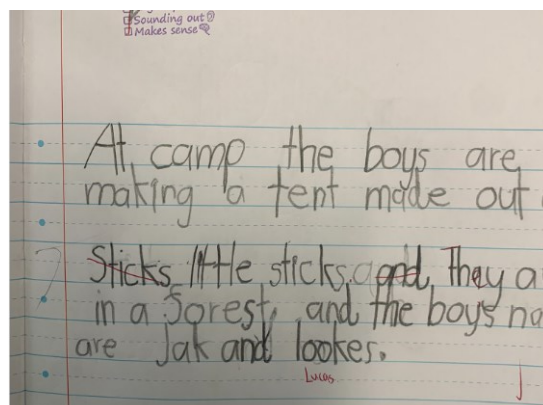 Sounding out
Makes sense
At camp the boys are
making a tent made out
Sticks little sticks, and, They a
in a forest, and the boys na
are Jak and lookes.
Lucas